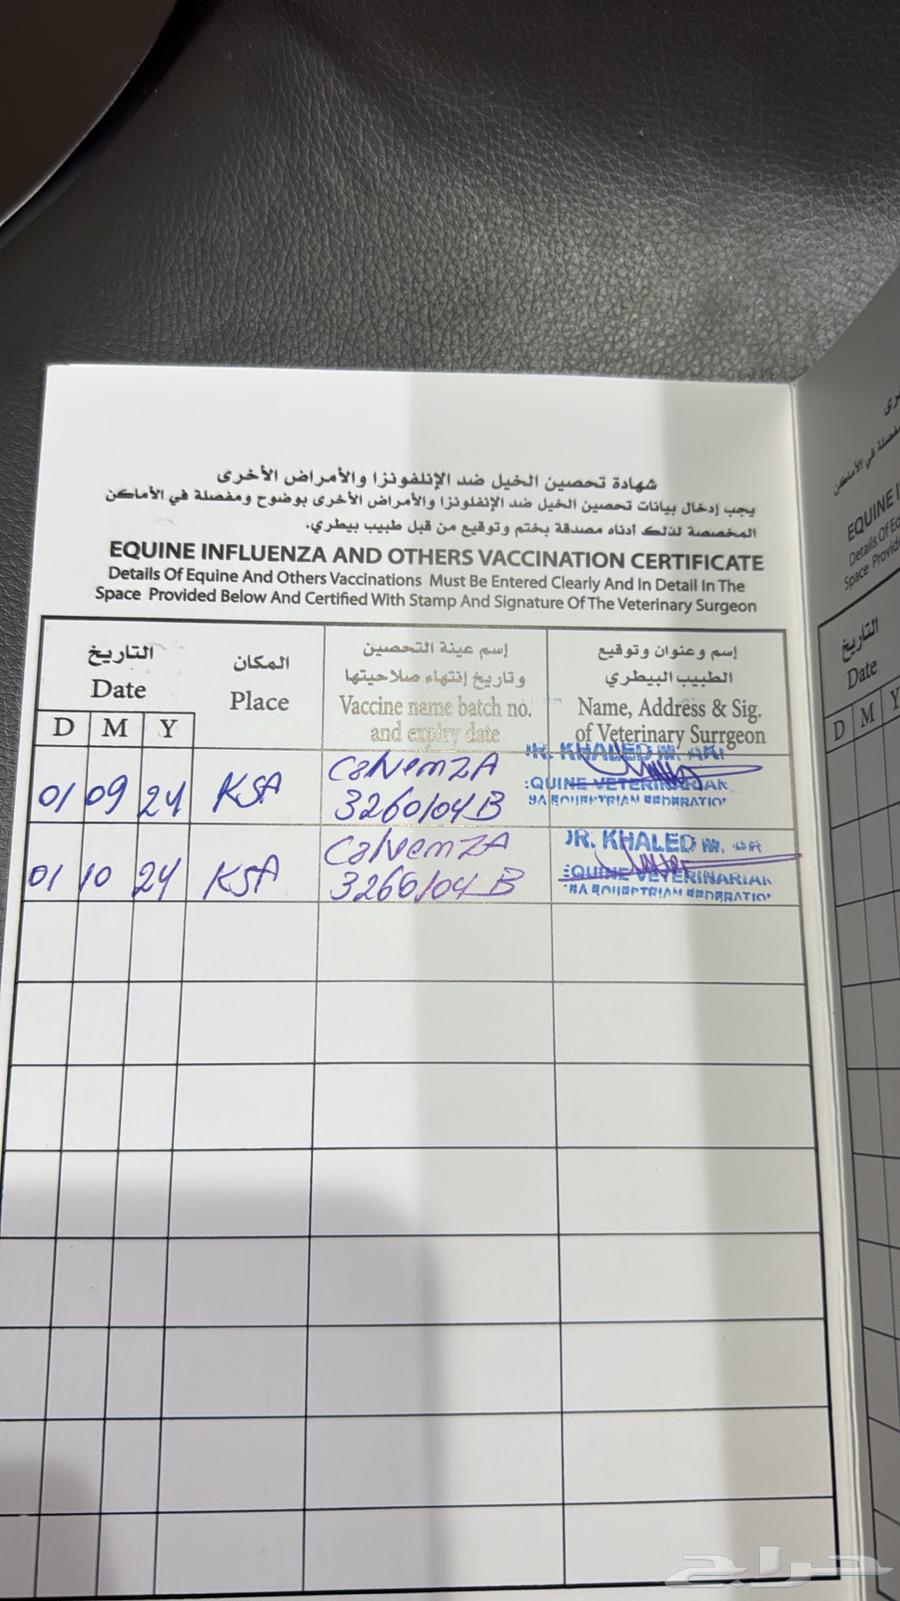 شهادة تحصين الخيل ضد الإنلفونزا والأمراض الأخرى
يجب إدخال بيانات تحصين الخيل ضد الإنفلونزا والأمراض الأخرى بوضوح ومفصلة في الأماكن
المخصصة لذلك أدناه مصدقة بختم وتوقيع من قبل طبيب بيطري.
EQUINE INFLUENZA AND OTHERS VACCINATION CERTIFICATE
Details Of Equine And Others Vaccinations Must Be Entered Clearly And In Detail In The
Space Provided Below And Certified With Stamp And Signature Of The Veterinary Surgeon
التاريخ
Date
D M Y
المكان
Place
إسم عينة التحصين
وتاريخ إنتهاء صلاحيتها
Vaccine name batch no.
and expiry date
إسم وعنوان وتوقيع
الطبيب البيطري
Name, Address & Sig.
of Veterinary Surrgeon
01 09 24 KSA
Calvenza
3260104B
KHALED M.
EQUINE VETERINARIAN
01 10 24 KSA
Calvenza
3260104B
DR. KHALED M.
EQUINE VETERINARIAN
التاريخ
Date
D M Y
EQUINE
Space
حراج